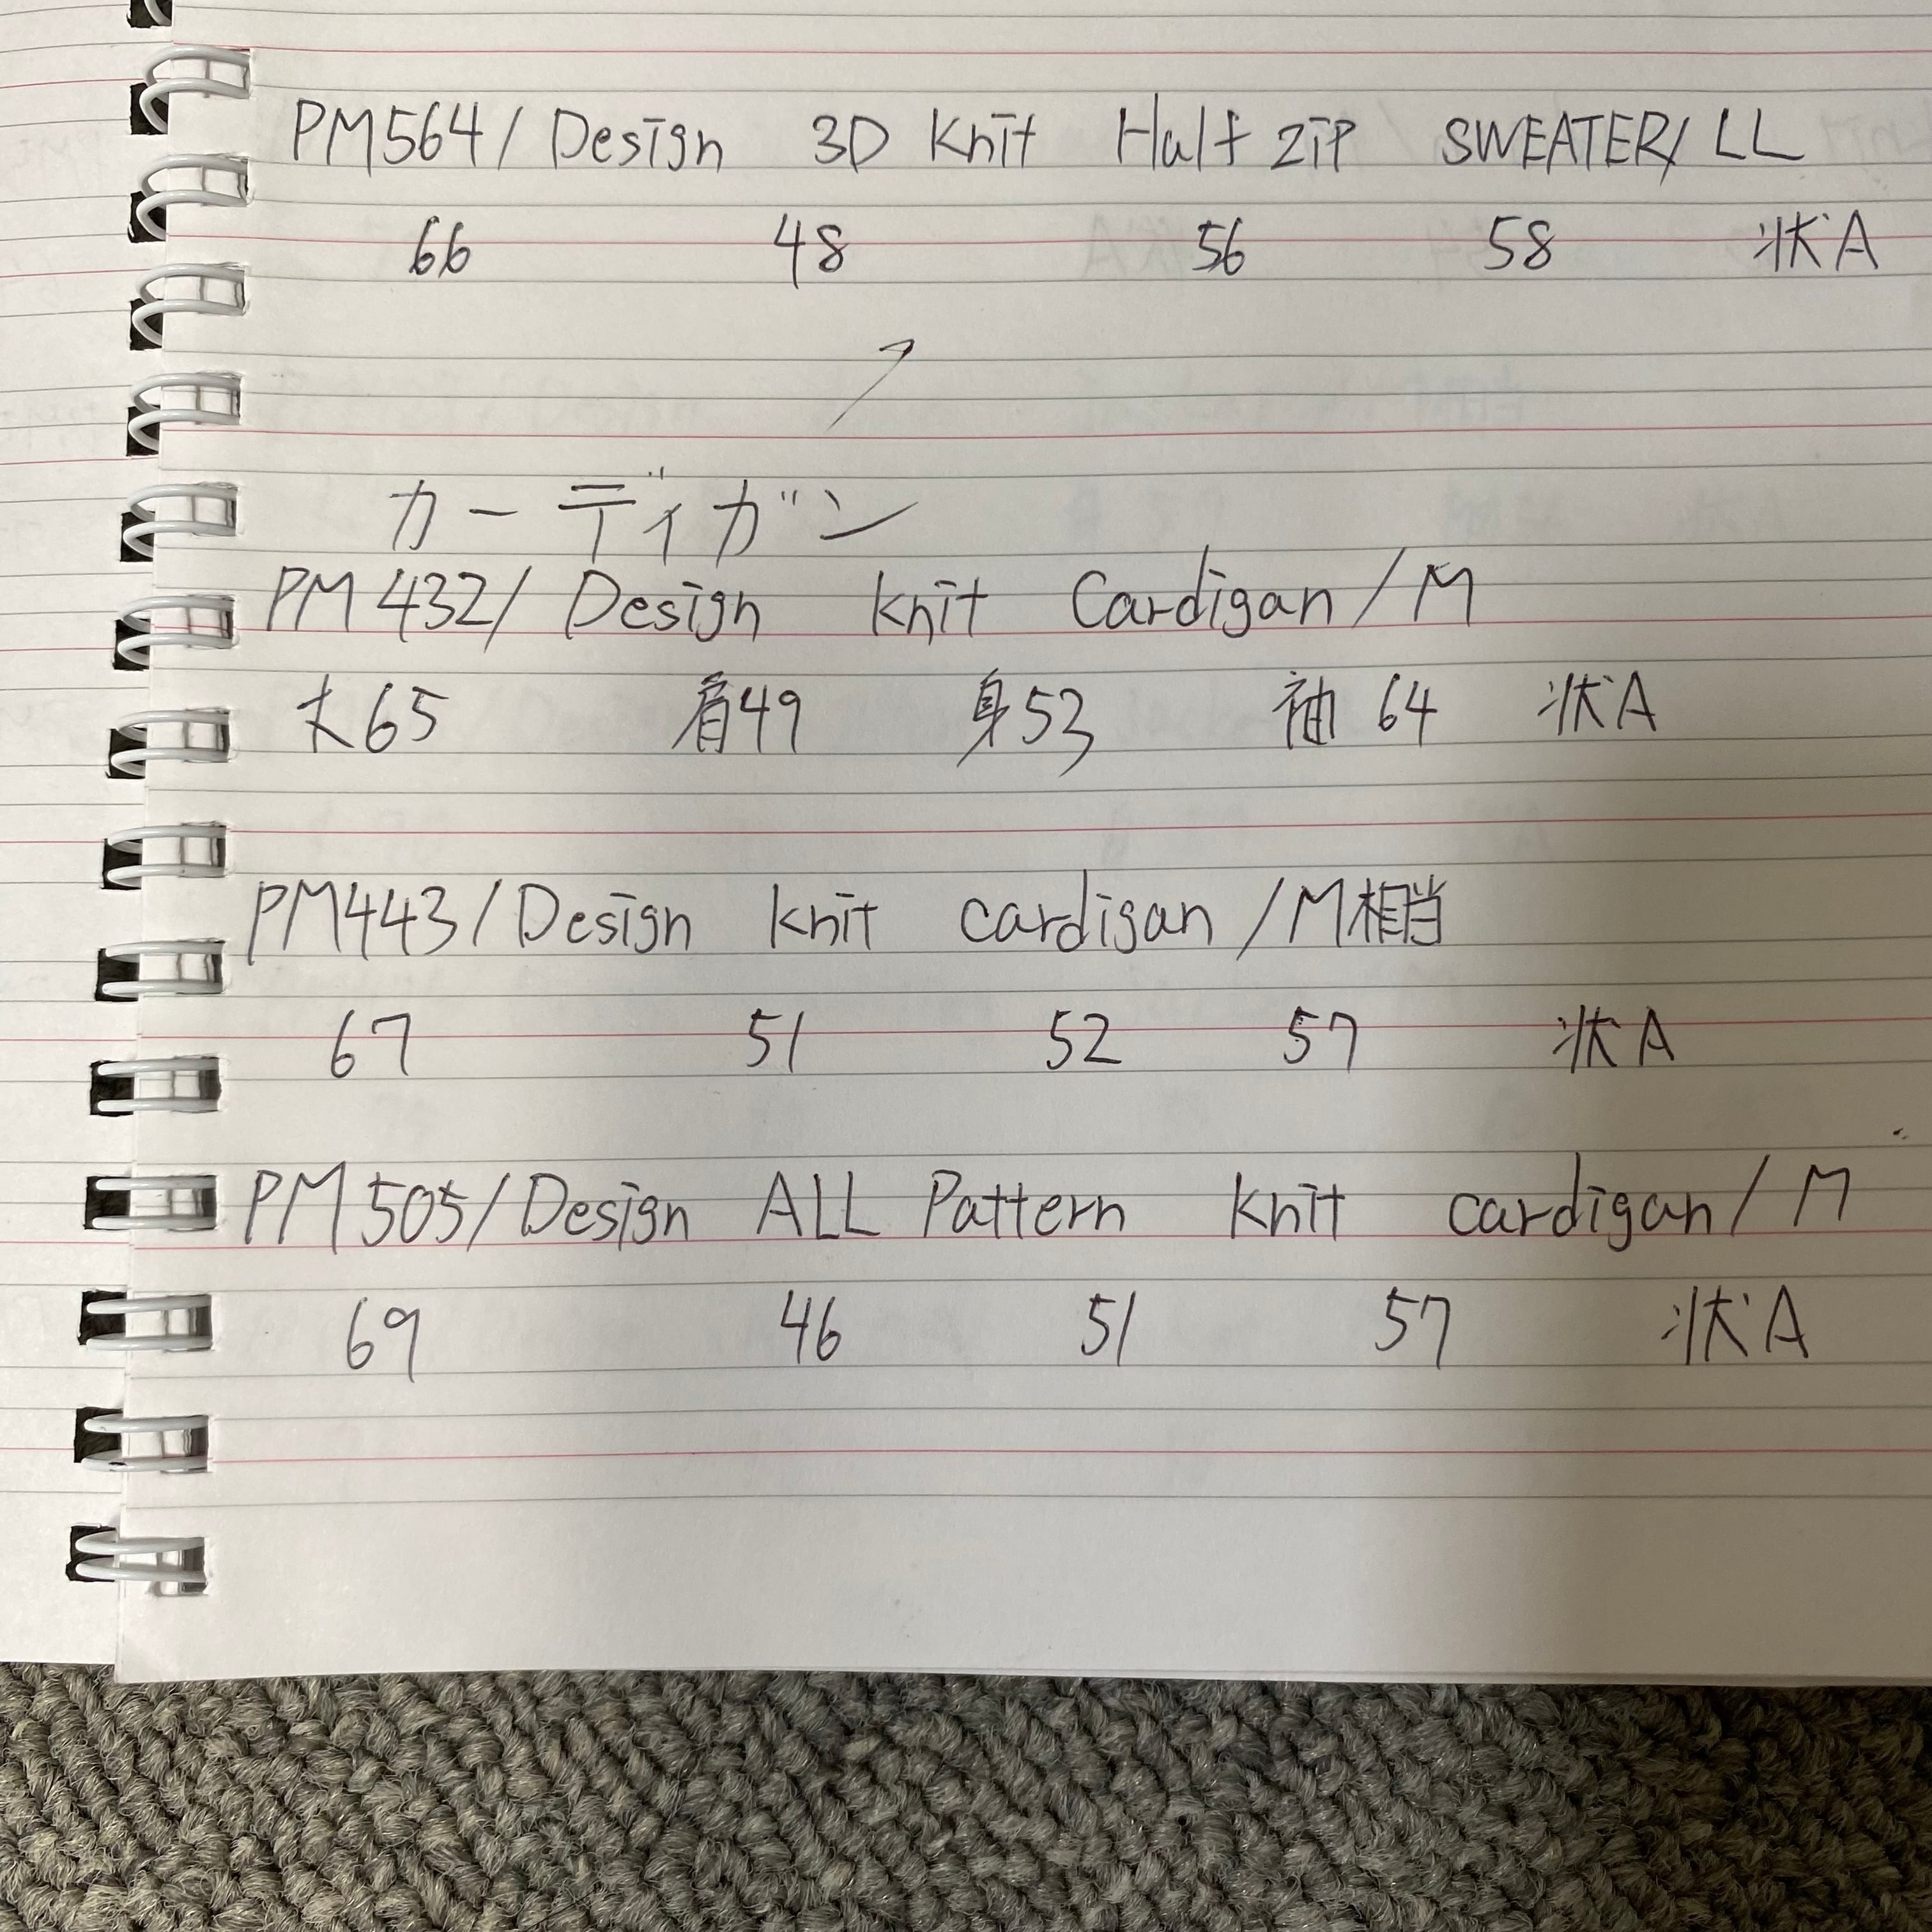 PM564/Design 3D Knit Half zip SWEATER/LL
66 48 56 58 状A
カーディガン
PM432/Design knit Cardigan/M
丈65 肩49 身53 袖64 状A
PM443/Design knit cardigan/M相当
67 51 52 57 状A
PM505/Design ALL Pattern knit cardigan/M
69 46 51 57 状A